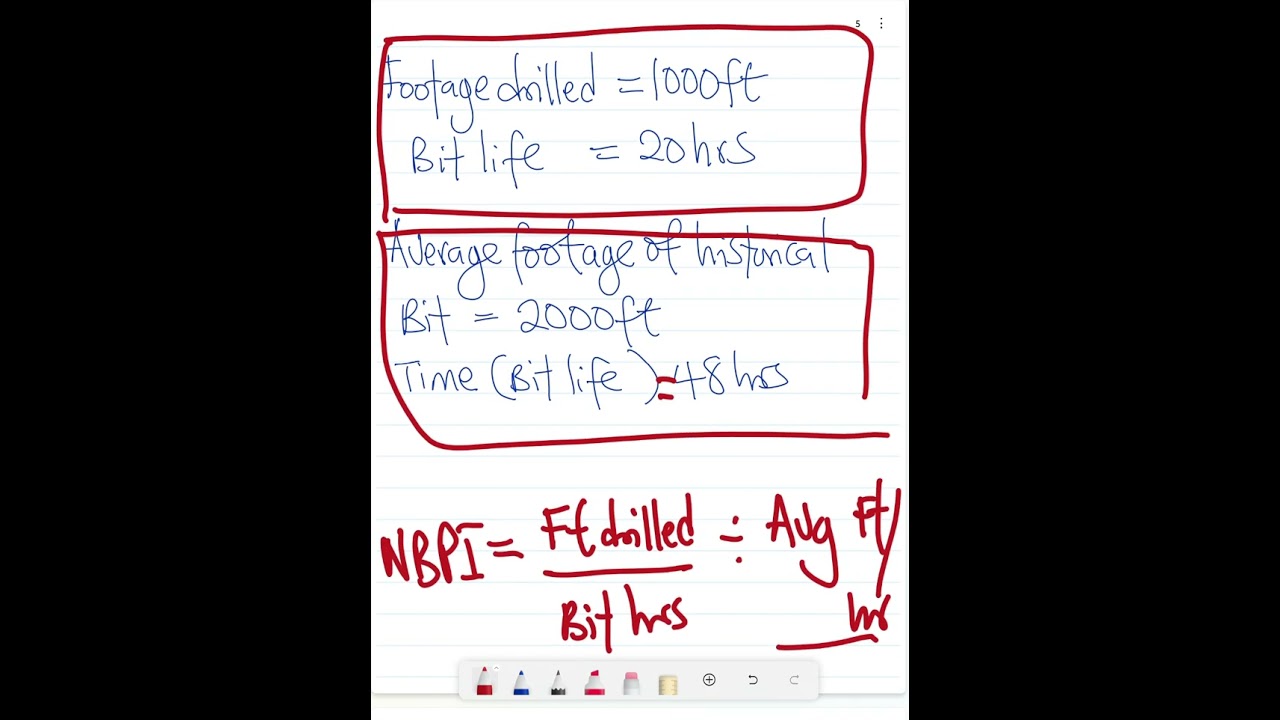 5
Footage drilled = 1000ft
Bit life = 20hrs
Average footage of historical
Bit = 2000ft
Time (Bit life) = 48hrs
NBPI = Ft drilled ÷ Avg Ft/
Bit hrs hr